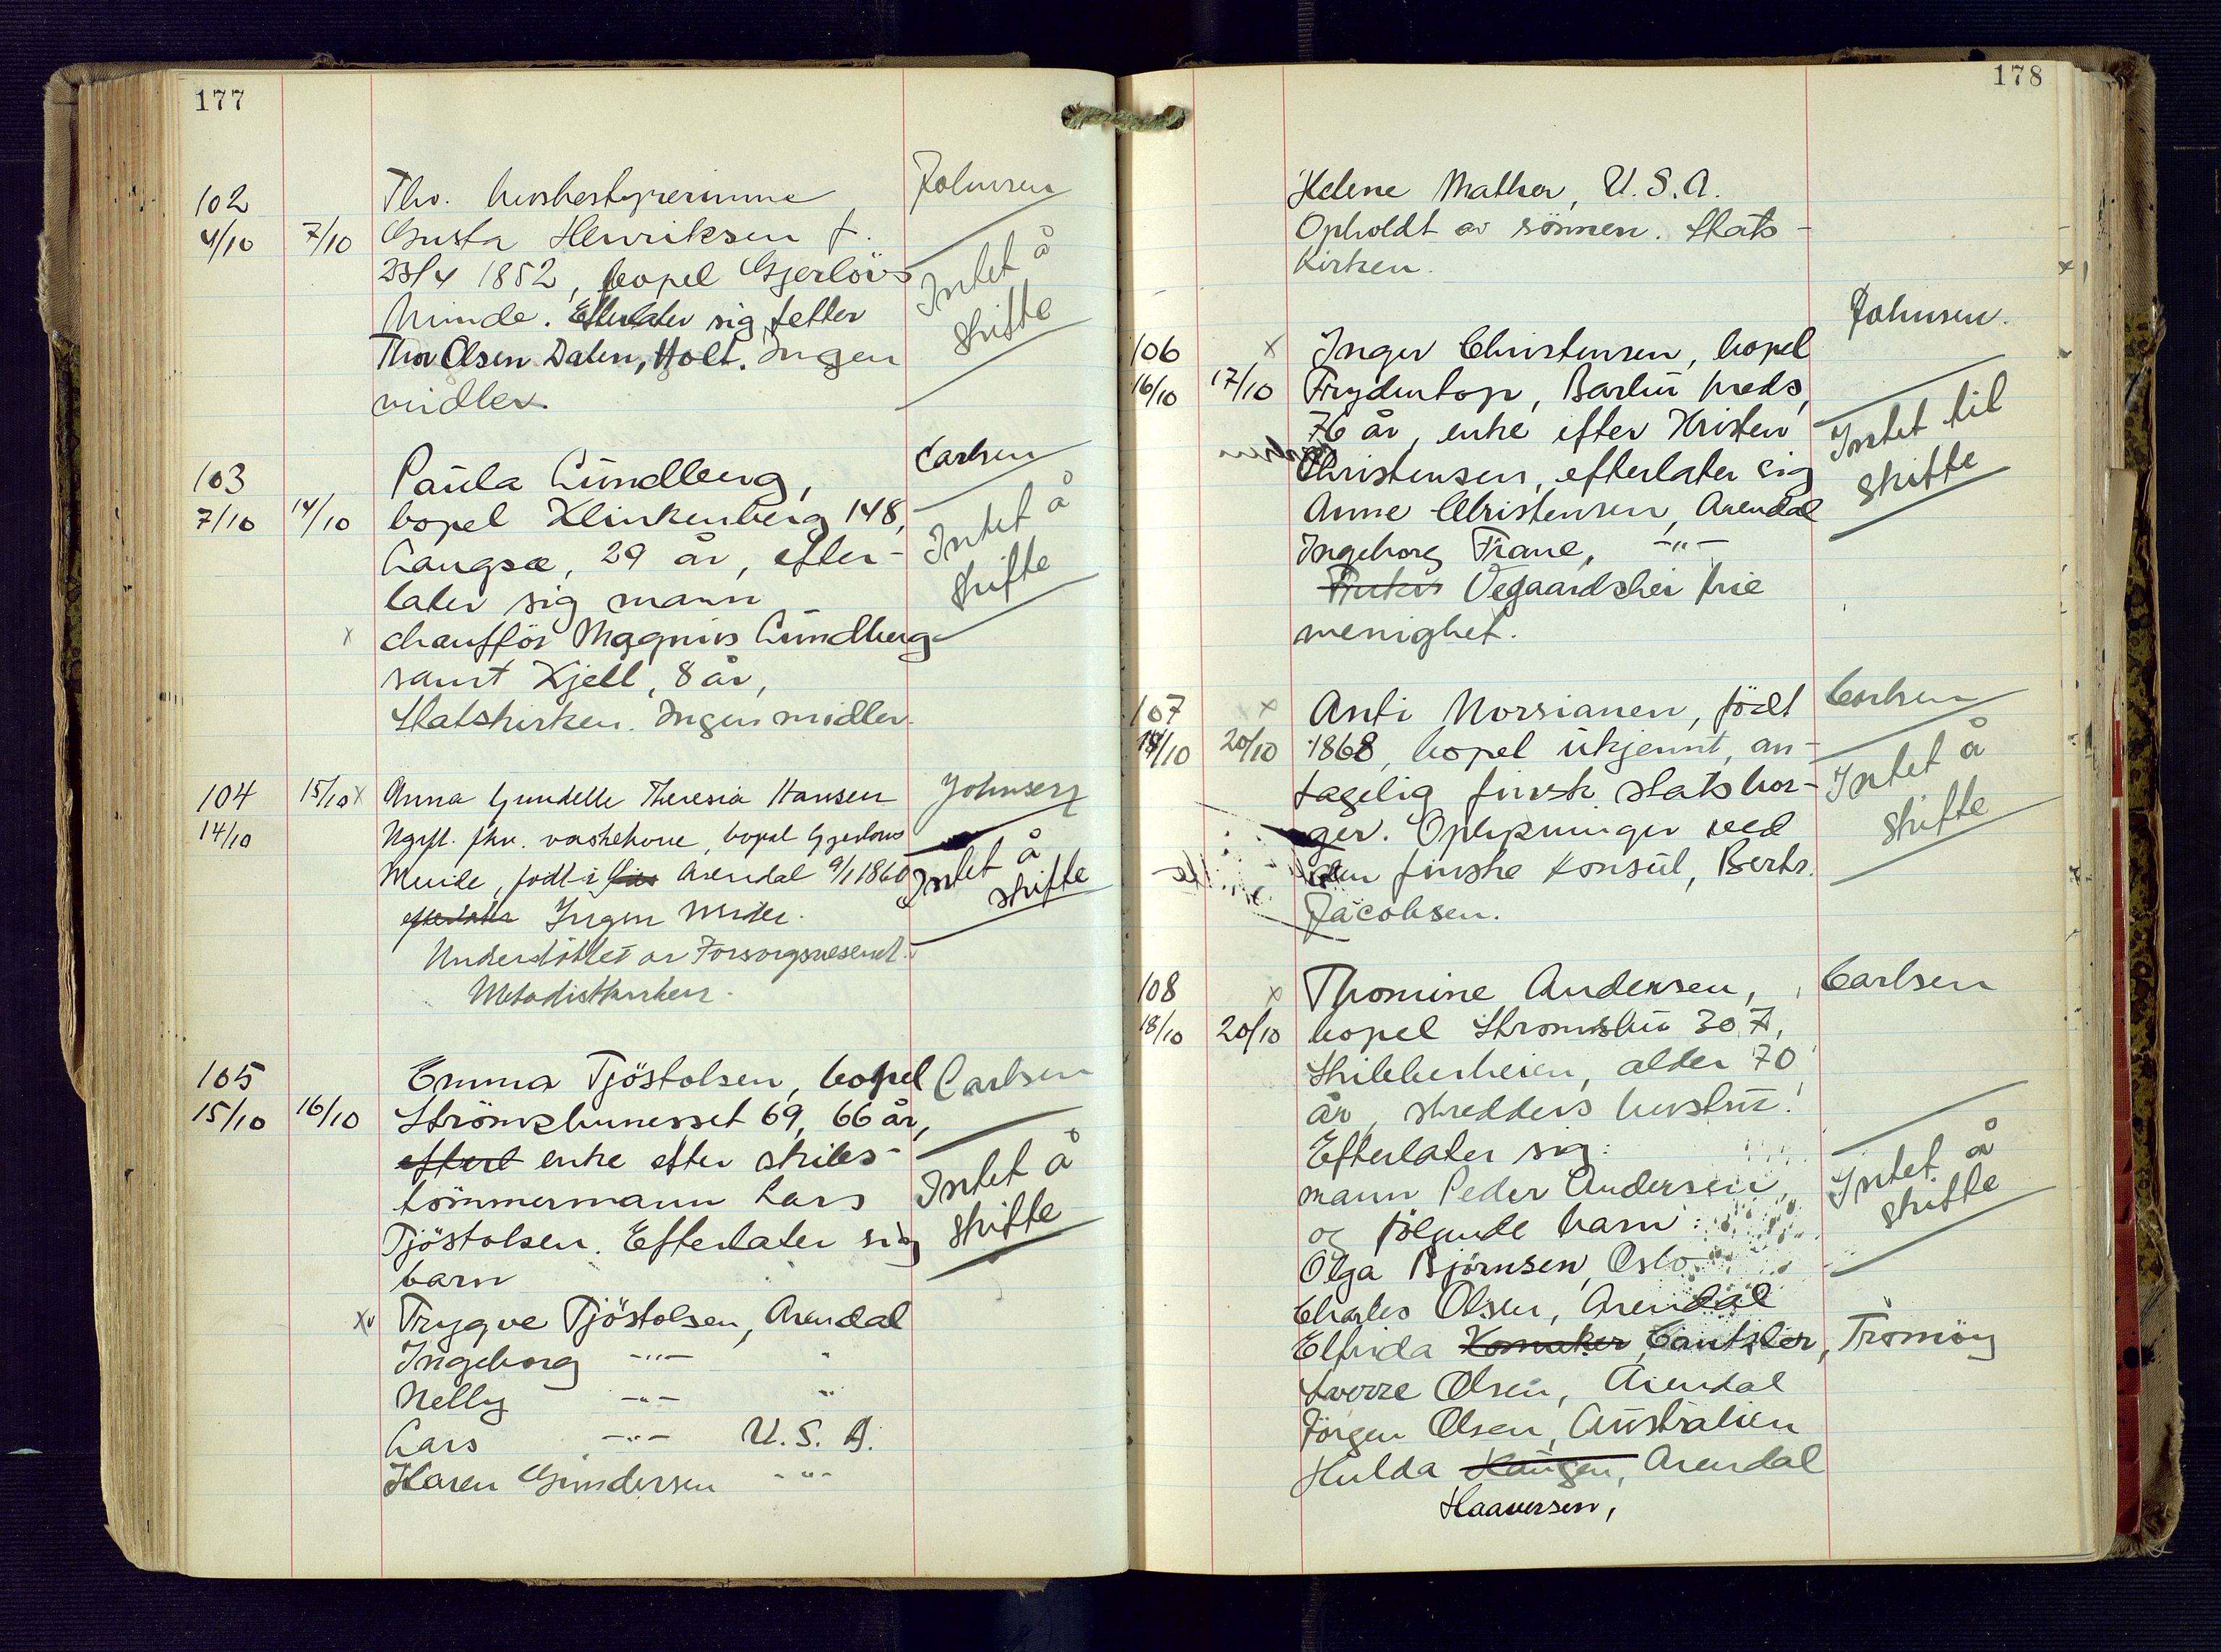 177
102
4/10 7/10
Fhv. husbestyrerinne
Gusta Henriksen f.
23/4 1852, bopel Gjerlöws
Minde. Efterlater sig fetter
Thor Olsen Dalen, Holt. Ingen
midler.
Johnsen
Intet å
skifte
103
7/10 14/10
Paula Lundberg,
bopel Klinkenberg 148,
Langsæ, 29 år, efter-
later sig mann
x chafför Magnus Lundberg
samt Kjell, 8 år,
Statskirken. Ingen midler.
Carlsen
Intet å
skifte
104 15/10 x
14/10
Anna Gundelle Theresia Hansen
Ugift. fhv. vaskekone, bopel Gjerlows
Minde, født i Arendal 9/1 1860
efterlater Ingen Midler.
Understöttet av Forsorgsvesenet.
Metodistkirken.
Johnsen
Intet å
skifte
105
15/10 16/10
Emma Tjöstolsen, bopel
Strömsbunesset 69, 66 år,
efterl enke efter skibs-
tömmermann Lars
Tjöstolsen. Efterlater sig
barn
Trygve Tjöstolsen, Arendal
Ingeborg -"- "
Nelly -"- "
Lars -"- U.S.A.
Karen Gundersen -"-
Carlsen
Intet å
skifte
178
Helene Mather, U.S.A.
Opholdt av sönnen. Stats-
kirken.
106 x
16/10 17/10
Inger Christensen, bopel
Frydentop, Barbu kreds,
76 år, enke efter Kristen
Christensen, efterlater sig
Anne Christensen, Arendal
Ingeborg Trane, -"-
Vegaardshei frie
menighet.
Johnsen.
Intet til
skifte
107 x x
18/10 20/10
Anti Norsianen, födt
1868, bopel ukjennt, an-
tagelig finsk statsbor-
ger. Oplysninger ved
den finske konsul, Berhr.
Jacobsen.
Carlsen
Intet å
skifte
108 x
18/10 20/10
Thomine Andersen,
bopel Strømsbu 307,
Skilleberheien, alder 70
år, skredders hustru.
Efterlater sig:
mann Peder Andersen,
og fölgende barn:
Olga Bjørnsen, Oslo
Charles Olsen, Arendal
Elfrida Komaker Cantzler, Tromöy
Sverre Olsen, Arendal
Jörgen Olsen, Australien
Hulda Haugen, Arendal
Haaversen,
Carlsen
Intet å
skifte